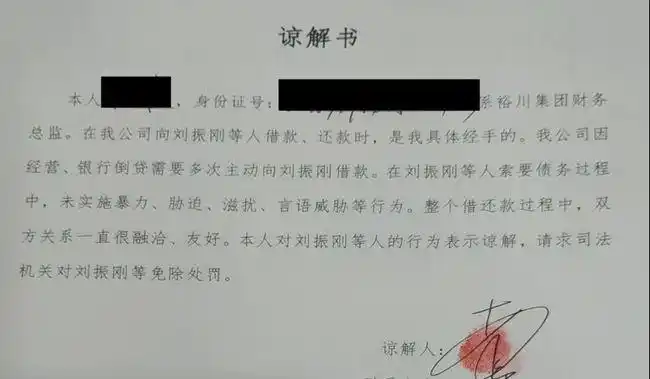 谅解书
本人，身份证号：系裕川集团财务
总监。在我公司向刘振刚等人借款、还款时，是我具体经手的。我公司因
经营、银行倒贷需要多次主动向刘振刚借款。在刘振刚等人索要债务过程
中，未实施暴力、胁迫、滋扰、言语威胁等行为。整个借还款过程中，双
方关系一直很融洽、友好。本人对刘振刚等人的行为表示谅解，请求司法
机关对刘振刚等免除处罚。
谅解人：